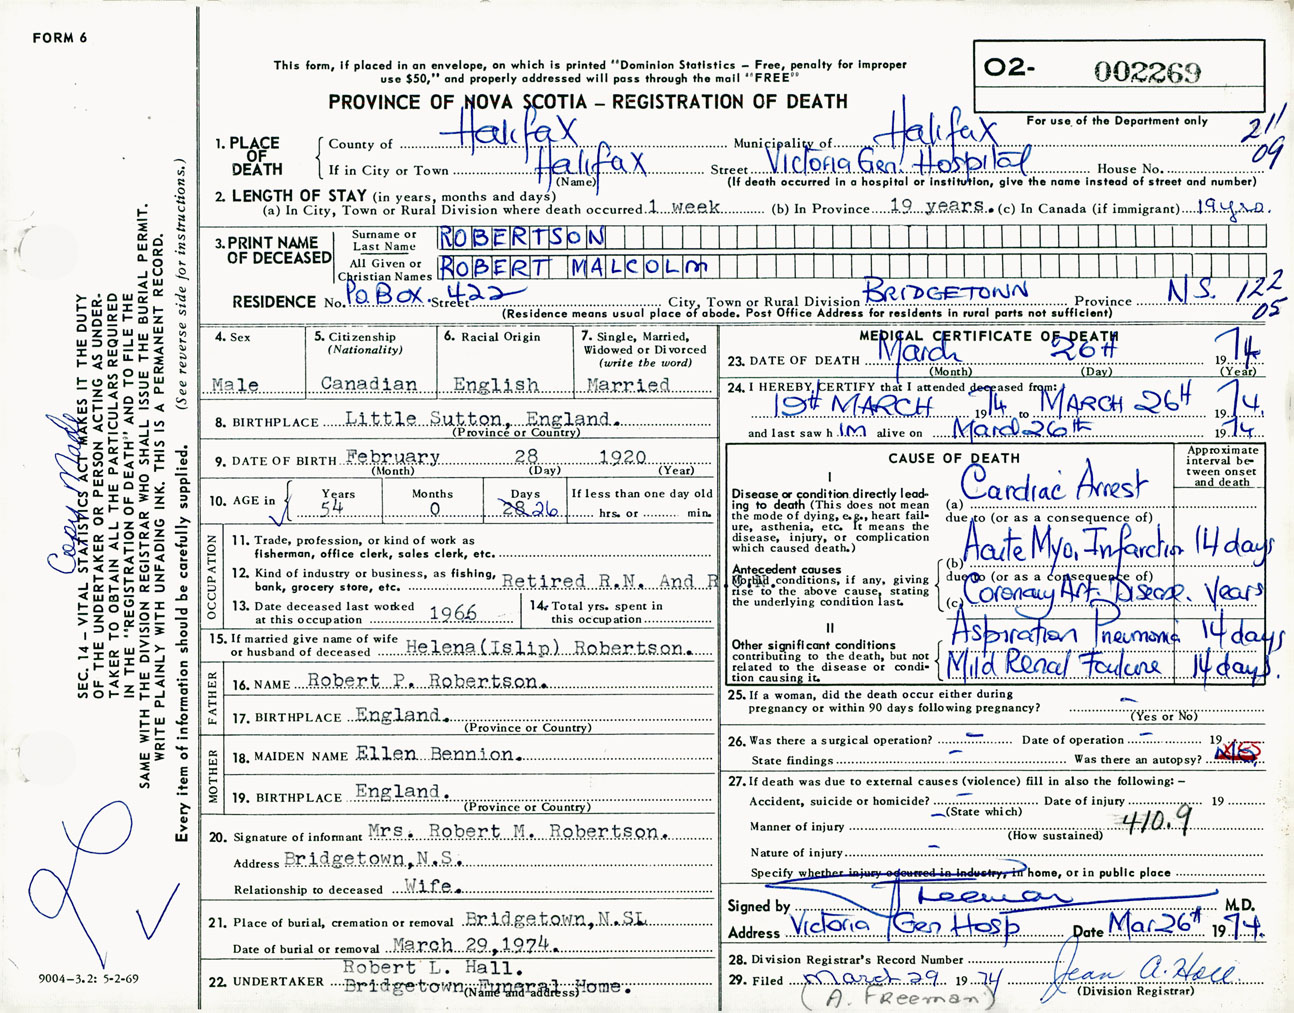 FORM 6
This form, if placed in an envelope, on which is printed "Dominion Statistics – Free, penalty for improper
use $50," and properly addressed will pass through the mail "FREE"
O2- 002269
For use of the Department only
PROVINCE OF NOVA SCOTIA – REGISTRATION OF DEATH
211
09
1. PLACE OF DEATH
County of Halifax Municipality of Halifax
If in City or Town Halifax Street Victoria Gen. Hospital House No.
(Name) (If death occurred in a hospital or institution, give the name instead of street and number)
2. LENGTH OF STAY (in years, months and days)
(a) In City, Town or Rural Division where death occurred 1 week (b) In Province 19 years. (c) In Canada (if immigrant) 19 yrs.
3. PRINT NAME OF DECEASED
Surname or Last Name ROBERTSON
All Given or Christian Names ROBERT MALCOLM
RESIDENCE No. P.O. Box. 422 Street City, Town or Rural Division BRIDGETOWN Province N.S. 122
05
(Residence means usual place of abode. Post Office Address for residents in rural parts not sufficient)
4. Sex
Male
5. Citizenship
(Nationality)
Canadian
6. Racial Origin
English
7. Single, Married,
Widowed or Divorced
(write the word)
Married
8. BIRTHPLACE Little Sutton, England.
(Province or Country)
9. DATE OF BIRTH February 28 1920
(Month) (Day) (Year)
10. AGE in
Years Months Days If less than one day old
54 0 28 26 hrs. or min.
OCCUPATION
11. Trade, profession, or kind of work as
fisherman, office clerk, sales clerk, etc.
12. Kind of industry or business, as fishing,
bank, grocery store, etc. Retired R.N. And R.
13. Date deceased last worked
at this occupation 1966
14. Total yrs. spent in
this occupation
15. If married give name of wife
or husband of deceased Helena(Islip) Robertson.
FATHER
16. NAME Robert P. Robertson.
17. BIRTHPLACE England.
(Province or Country)
MOTHER
18. MAIDEN NAME Ellen Bennion.
19. BIRTHPLACE England.
(Province or Country)
20. Signature of informant Mrs. Robert M. Robertson.
Address Bridgetown,N.S.
Relationship to deceased Wife.
21. Place of burial, cremation or removal Bridgetown,N.SL
Date of burial or removal March 29,1974.
22. UNDERTAKER Robert L. Hall.
Bridgetown Funeral Home.
(Name and address)
MEDICAL CERTIFICATE OF DEATH
23. DATE OF DEATH March 26th 1974
(Month) (Day) (Year)
24. I HEREBY CERTIFY that I attended deceased from:
19th MARCH 1974 to MARCH 26th 1974.
and last saw him alive on March 26th 1974
CAUSE OF DEATH
Approximate
interval be-
tween onset
and death
I
Disease or condition directly lead-
ing to death (This does not mean
the mode of dying, e.g., heart fail-
ure, asthenia, etc. It means the
disease, injury, or complication
which caused death.)
(a) Cardiac Arrest
due to (or as a consequence of)
(b) Acute Myo. Infarction 14 days
Antecedent causes
Morbid conditions, if any, giving
rise to the above cause, stating
the underlying condition last.
due to (or as a consequence of)
(c) Coronary Art. Disease. Years
II
Other significant conditions
contributing to the death, but not
related to the disease or condi-
tion causing it.
Aspiration Pneumonia 14 days
Mild Renal Failure 14 days.
25. If a woman, did the death occur either during
pregnancy or within 90 days following pregnancy? –
(Yes or No)
26. Was there a surgical operation? – Date of operation – 19
State findings – Was there an autopsy?
27. If death was due to external causes (violence) fill in also the following: –
Accident, suicide or homicide? – Date of injury 19
(State which)
Manner of injury – 410.9
(How sustained)
Nature of injury –
Specify whether injury occurred in industry, in home, or in public place
Signed by Freeman M.D.
Address Victoria Gen Hosp Date Mar 26th 1974.
28. Division Registrar's Record Number
29. Filed March 29 1974 Jean A. Hall
(Division Registrar)
(A. FREEMAN)
SEC. 14 – VITAL STATISTICS ACT MAKES IT THE DUTY
OF THE UNDERTAKER OR PERSON ACTING AS UNDER-
TAKER TO OBTAIN ALL THE PARTICULARS REQUIRED
IN THE "REGISTRATION OF DEATH" AND TO FILE THE
SAME WITH THE DIVISION REGISTRAR WHO SHALL ISSUE THE BURIAL PERMIT.
WRITE PLAINLY WITH UNFADING INK. THIS IS A PERMANENT RECORD.
Every item of information should be carefully supplied. (See reverse side for instructions.)
Copy Made
9004–3.2: 5-2-69